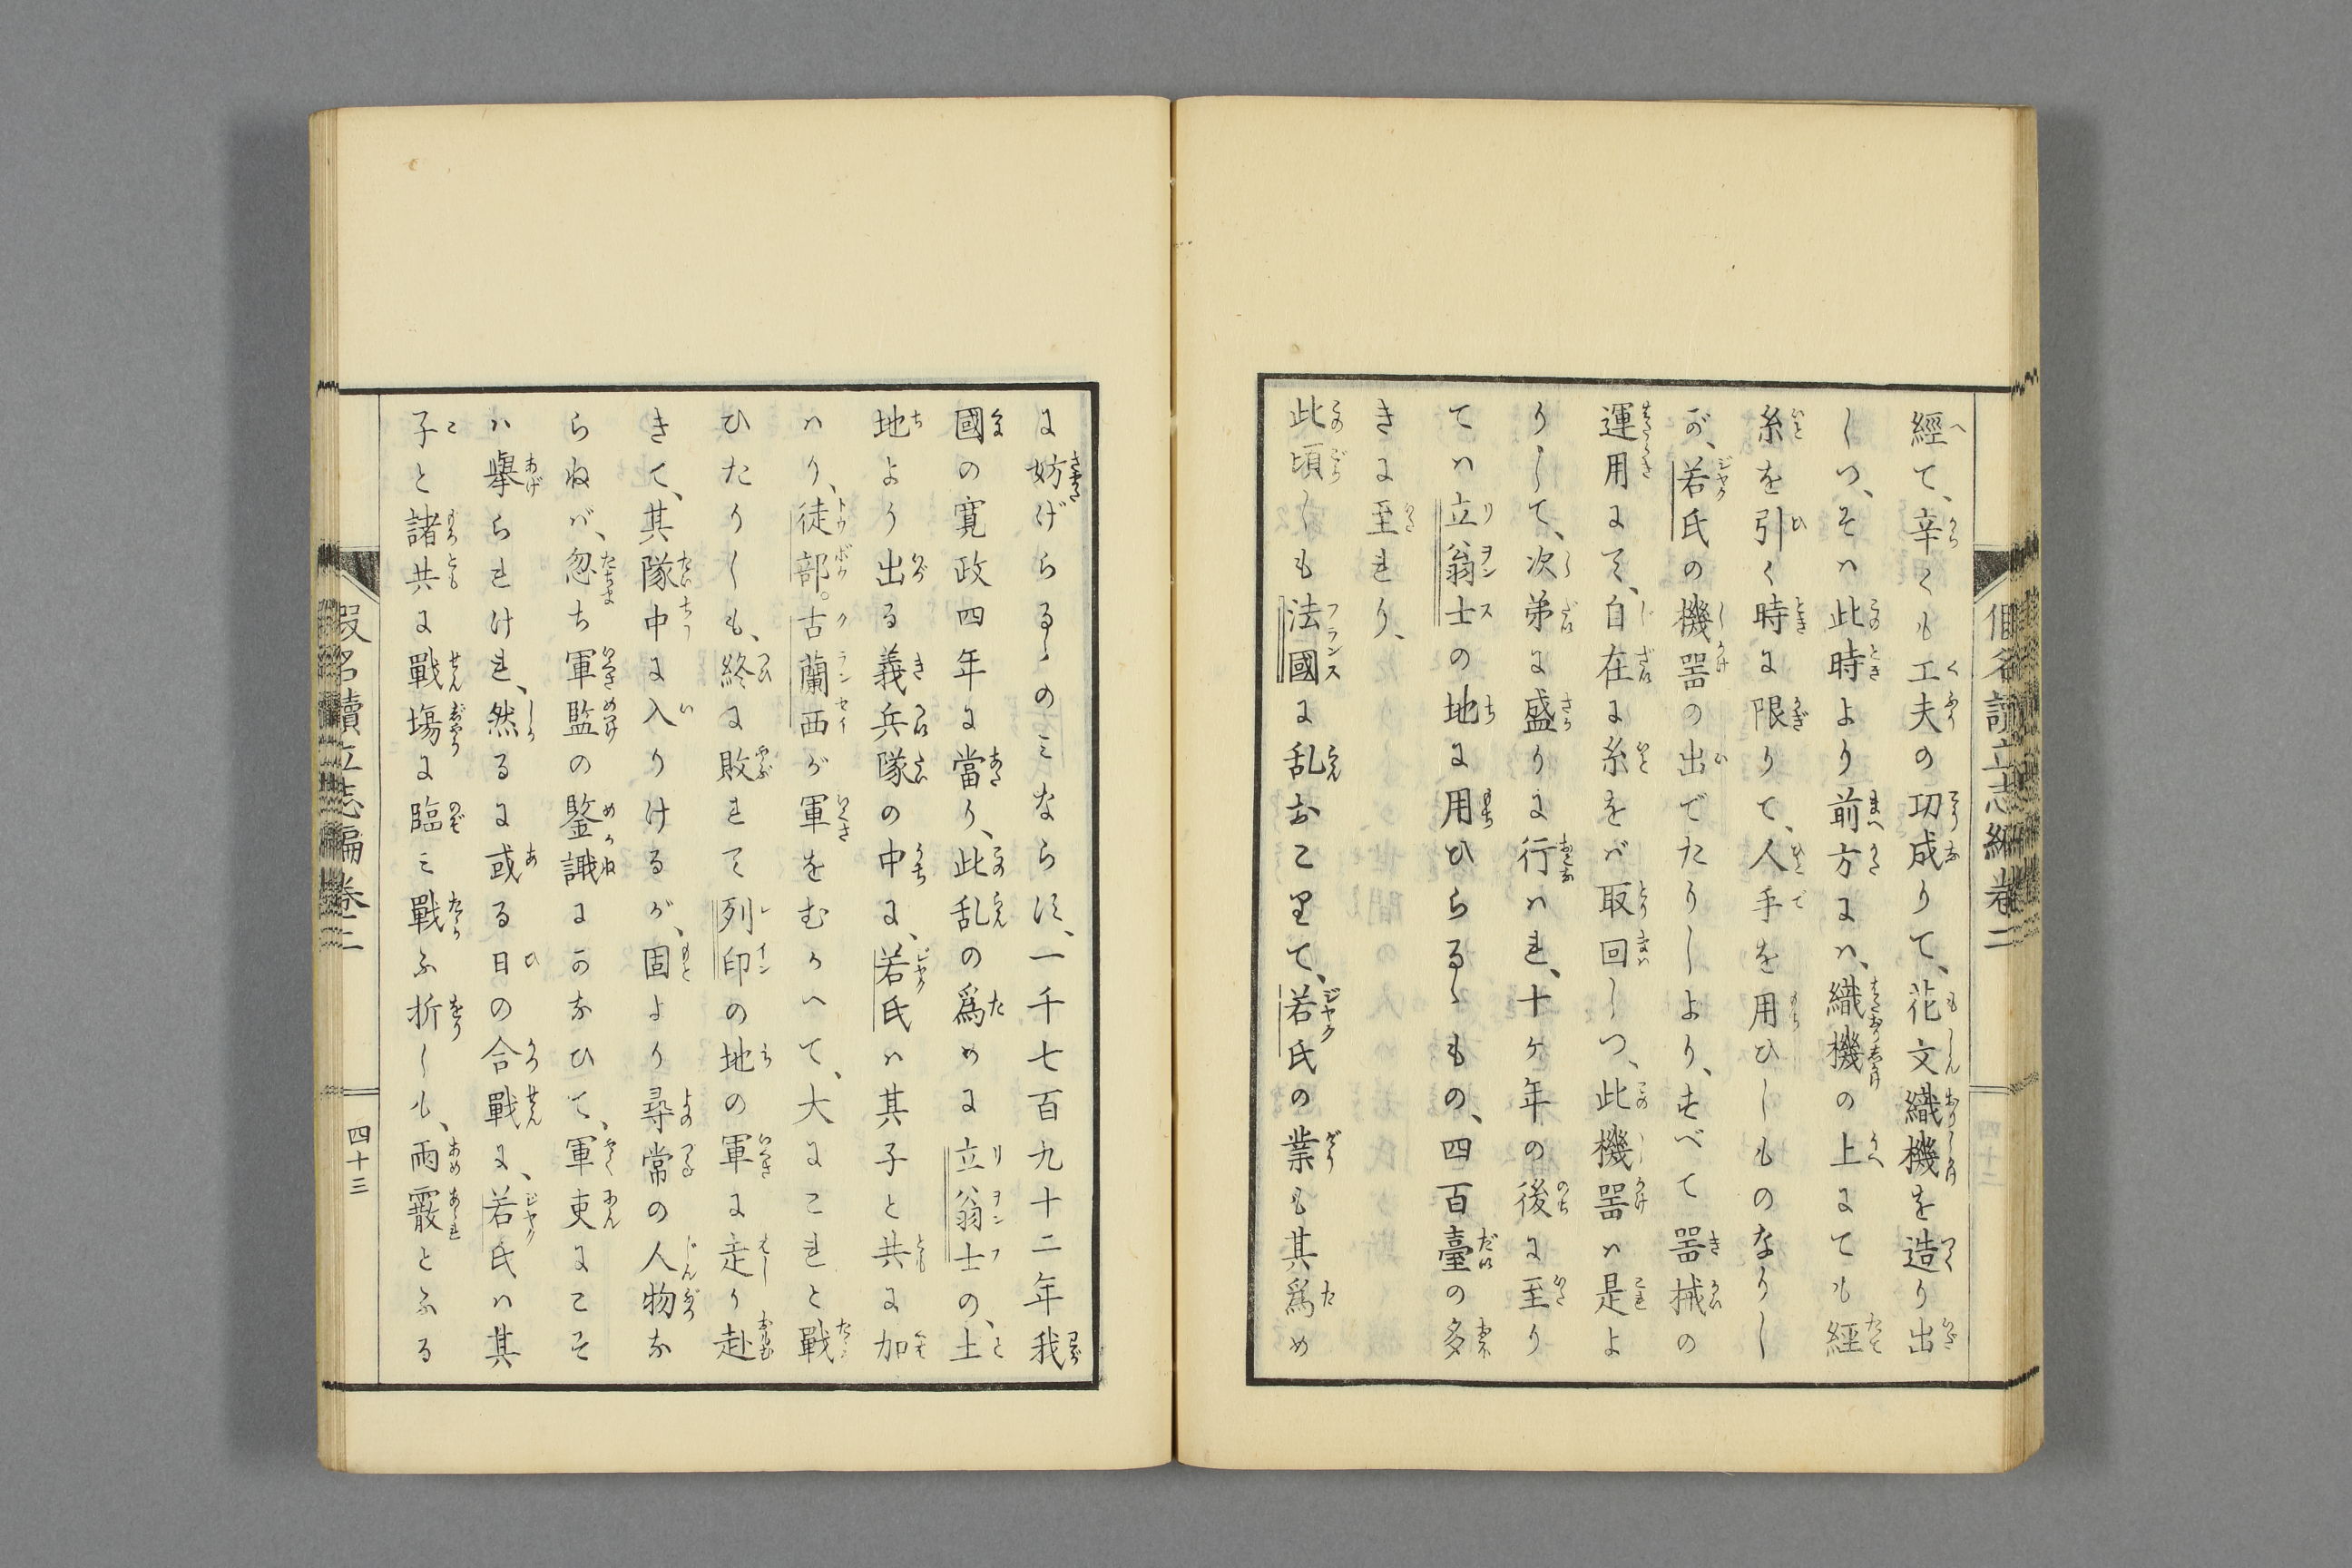 經て、辛くも工夫の功成りて、花文織機を造り出
しつ、そハ此時より前方にハ、織機の上にても經
糸を引く時に限りて、人手を用ひしものなりし
が、若氏の機噐の出でたりしより、すべて噐械の
運用にて、自在に糸をバ取回しつ、此機噐ハ是よ
りして、次弟に盛りに行ハれ、十ヶ年の後に至り
てハ立翁士の地に用ひらるゝもの、四百臺の多
きに至れり、
此頃しも法國に乱おこりて、若氏の業も其爲め
に妨げらるゝのミならず、一千七百九十二年我
國の寛政四年に當り、此乱の爲めに立翁士の、土
地より出る義兵隊の中に、若氏ハ其子と共に加
ハり、徒部。古蘭西が軍をむかへて、大にこれと戰
ひたりしも、終に敗れて列印の地の軍に走り赴
きて、其隊中に入りけるが、固より尋常の人物な
らねバ、忽ち軍監の鑒識にかなひて、軍吏にこそ
ハ擧られけれ、然るに或る日の合戰に、若氏ハ其
子と諸共に戰塲に臨ミ戰ふ折しも、雨霰とふる
假名讀立志編 卷二
四十三